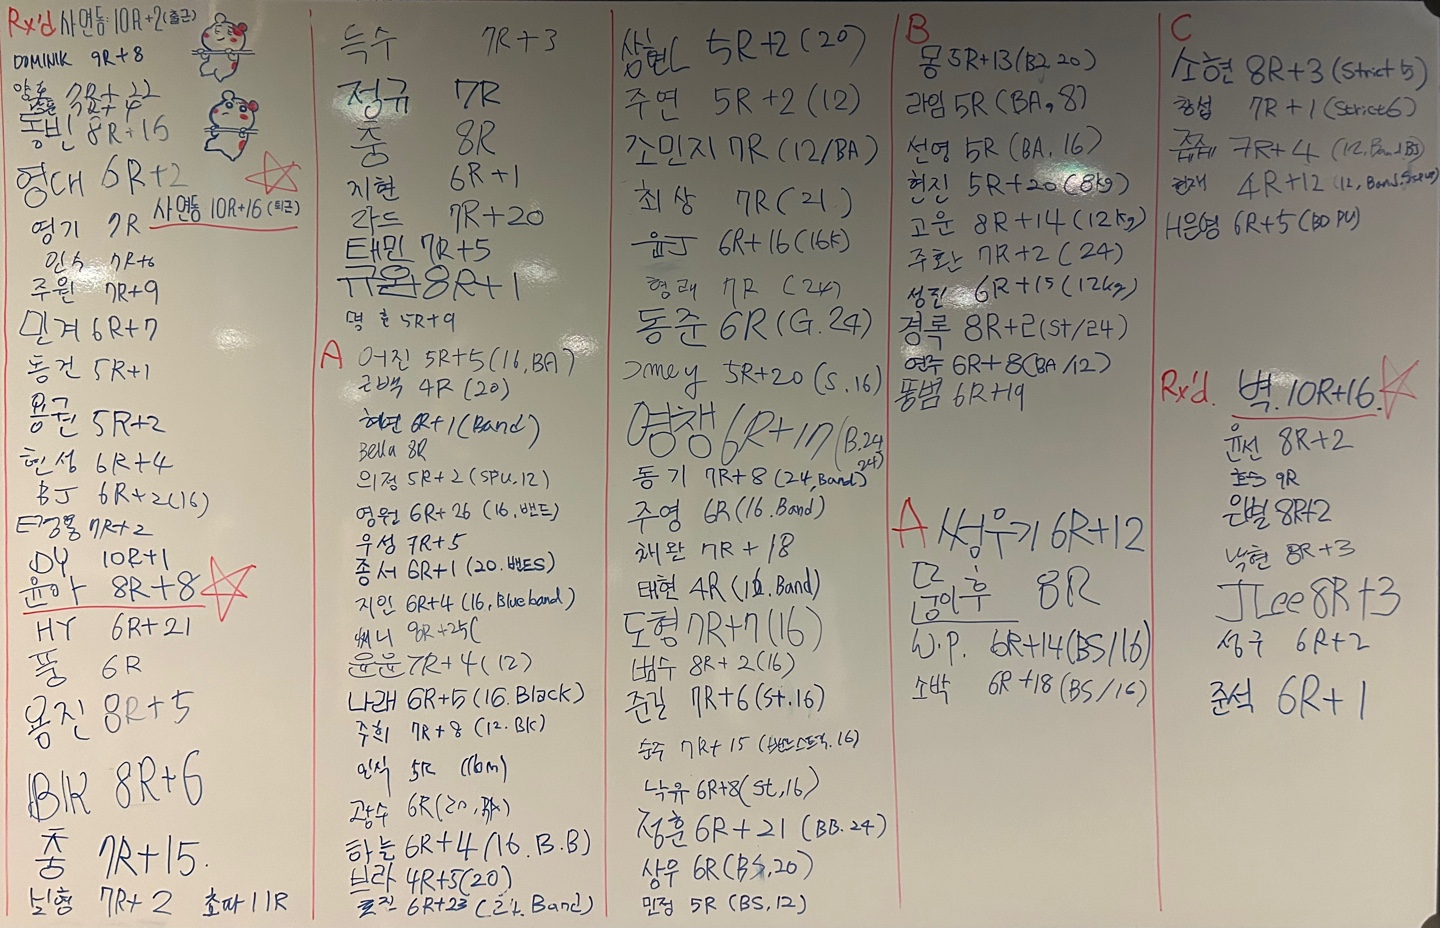 Rx'd 사연동 10R+2(출근)
DOMINIK 9R+8
동빈 8R+16
영대 6R+2
사연동 10R+16(퇴근)
영기 7R
민수 7R+6
주원 7R+9
민겨 6R+7
동건 5R+1
용권 5R+2
현성 6R+4
BJ 6R+2(16)
7R+2
DY 10R+1
윤아 8R+8
HY 6R+21
풍 6R
용진 8R+5
BK 8R+6
충 7R+15.
보형 7R+2 초파 11R
득수 7R+3
정규 7R
충 8R
지현 6R+1
라드 7R+20
태민 7R+5
구완 8R+1
명훈 5R+9
A 어진 5R+5(16,BA)
근백 4R(20)
혜연 6R+1(Band)
Bella 8R
의정 5R+2(SPU.12)
영원 6R+26 (16.밴드)
우성 7R+5
종서 6R+1(20.밴드S)
지인 6R+4(16,Blueband)
쎄니 8R+25(
윤윤 7R+4(12)
나래 6R+5(16.Black)
주희 7R+8(12.BK)
인식 5R
광수 6R
하늘 6R+4(16.B.B)
브라 4R+5(20)
6R+23 Band)
삼현L 5R+2(20)
주연 5R+2(12)
조민지 7R(12/BA)
최상 7R(21)
윤J 6R+16(16K)
형래 7R (24)
동준 6R(G.24)
Jmey 5R+20(S.16)
영쟁 6R+17(B.24
24)
동기 7R+8(24,Band)
주영 6R(16.Band)
채완 7R+18
태현 4R Band)
도형 7R+7(16)
범수 8R+2(16)
준길 7R+6(St.16)
승주 7R+15 16)
낙유 6R+8(St,16)
정훈 6R+21(BB.24)
상우 6R(BS,20)
민정 5R(BS,12)
B
몽 5R+13(B2.20)
라임 5R(BA,8)
선영 5R(BA.16)
현진 5R+20(8kg)
고운 8R+14(12kg)
주호난 7R+2(24)
성진 6R+15(12kg)
경록 8R+2(St/24)
연주 6R+8(BA/12)
똥범 6R+19
A 썽우기 6R+12
뭉이후 8R
W.P. 6R+14(BS/16)
소박 6R+18(BS/16)
C
소현 8R+3(Strict5)
창섭 7R+1(Strict6)
7R+4
4R+12
H은영 6R+5(BOPU)
Rx'd. 벽. 10R+16.
윤선 8R+2
호두 9R
은별 8R+2
낙현 8R+3
JLee 8R+3
성구 6R+2
준석 6R+1